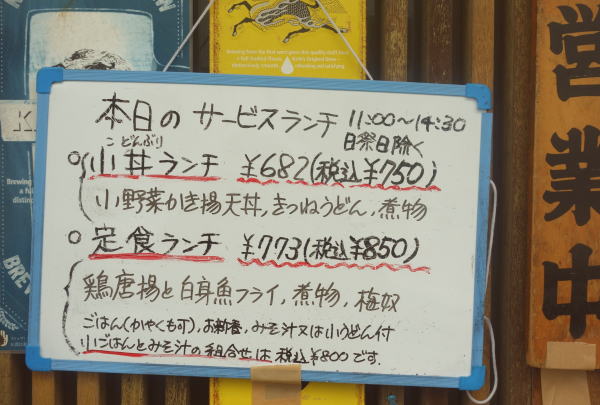 本日の サービスランチ 11:00〜14:30
日祭日除く
こ どんぶり
小丼ランチ ¥682(税込¥750)
小野菜かき揚天丼, きつねうどん, 煮物
定食ランチ ¥773(税込¥850)
鶏唐揚と白身魚フライ, 煮物, 梅奴
ごはん(かやくも可), お新香, みそ汁又は小うどん付
小ごはんとみそ汁の組合せは 税込¥800です.
営業中